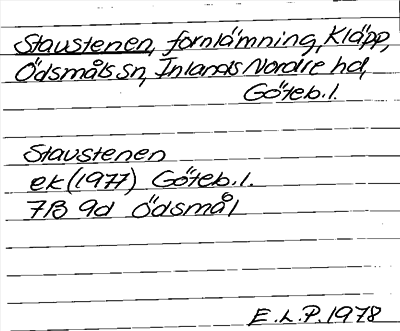 Stavstenen, fornlämning, Kläpp,
Ödsmåls Sn, Inlands Nordre hd,
Göteb.l.
Stavstenen
ek (1977) Göteb.l.
7B 9d Ödsmål
E.L.P. 1978